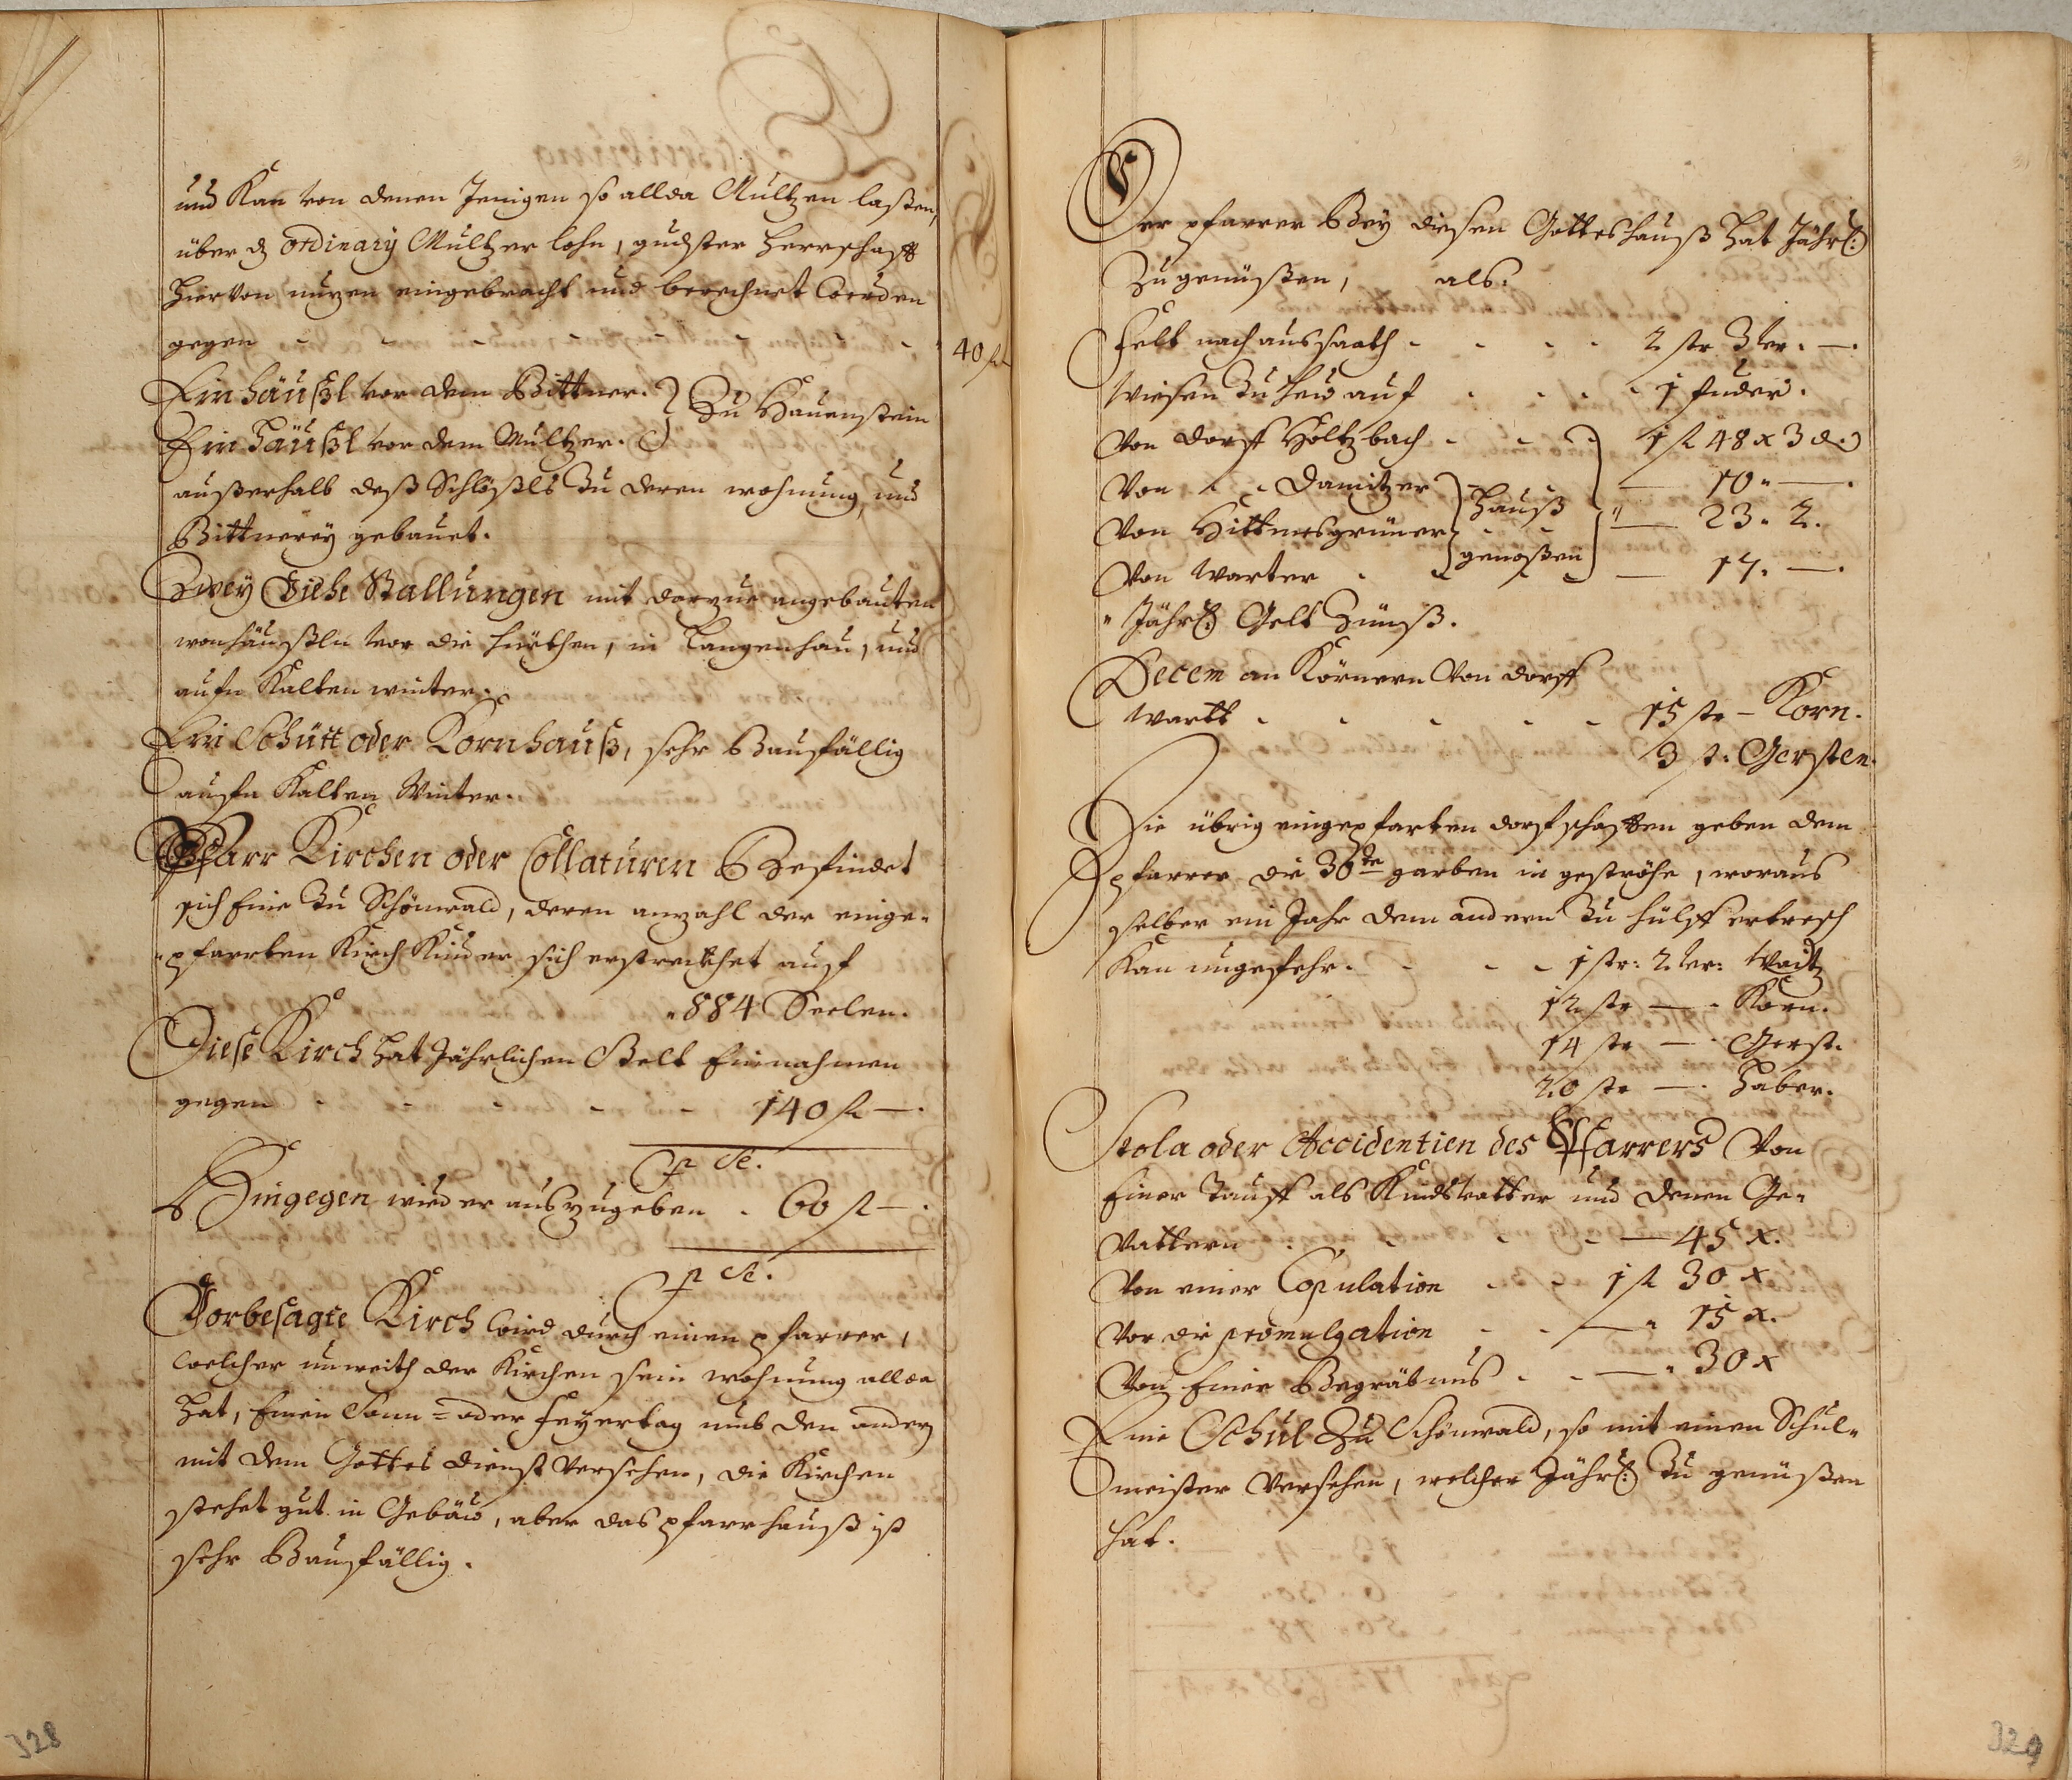 und Kan von denen Jenigen so allda Multzen lasten,
über dz ordinary Multzer lohn, gudster Herrschafft
hiervon nuzen eingebracht und berechnet werden
gegen - - - - - - - 40 fl
Ein häußl vor dem Bittner. } Zu Hauenstein
Ein häußl vor dem Multzer.
außerhalb deß Schlößls Zu deren wohnung, und
Bittnerey gebauet.
Zwey Viehe Stallungen mit darzue angebauten
wonhäußln vor die hürthen, in Langenhau, und
aufn Kalten winter.
Ein Schütt oder Kornhauß, sehr Baufällig
aufn Kalten Winter.
Pfarr Kirchen oder Collaturen Befindet
sich Eine Zu Schönwald, deren anzahl der einge-
pfarrten Kirch Kinder sich erstreckhet auf
884 Seelen.
Diese Kirch hat Jährlichen Gelt Einnahmen
gegen - - - - - 140 fl —.
p se.
Hingegen wieder auszugeben . 60 fl —.
p se.
Vorbesagte Kirch wird durch einen pfarrer,
welcher unweith der Kirchen sein wohnung allda
hat, Einen Sonn- oder Feyertag umb den andern
mit dem Gottes dienst Versehen, die Kirchen
stehet gut in Gebäu, aber das pfarrhauß ist
sehr Baufällig.
328
Der pfarrer Bey diesen Gotteshauß hat Jährl:
Zu genüßen, als:
Felt nach aussaath - - - - 2 str 3 ver. —.
Wiesen Zu heu auf - - - - 1 fuder.
Von dorff Holtzbach - - - 1 fl 48 x 3 d.
Von - - Damitzer } Hauß genoßen — 10 " —.
Von Hittmesgrüner — 23. 2.
Von Warter - - — 17. —.
Jährl: Gelt Zünß.
Decem an Körnern Von dorff
Wartt - - - - - 15 str - Korn.
3 st: Gersten.
Die übrig eingepfarten dorfschafften geben dem
pfarrer die 30te garben in geströhe, woraus
selber ein Jahr dem andern Zu hülff erdresch
Kan ungefehr. - - - 1 str: 2 ver: Waitz
12 str — . Korn.
14 str — . Gerst.
20 str — . Haber.
Stola oder Accidentien des Pfarrers Von
Einer Tauff als Kindsvatter und denen Ge-
Vattern - - - - — 45 x.
Von einer Copulation - - 1 fl 30 x
Vor die promulgation - - — " 15 x.
Von Einer Begräbnus - - — " 30 x
Eine Schul Zu Schönwald, so mit einen Schul-
meister Versehen, welcher Jährl: Zu genüßen
hat.
329